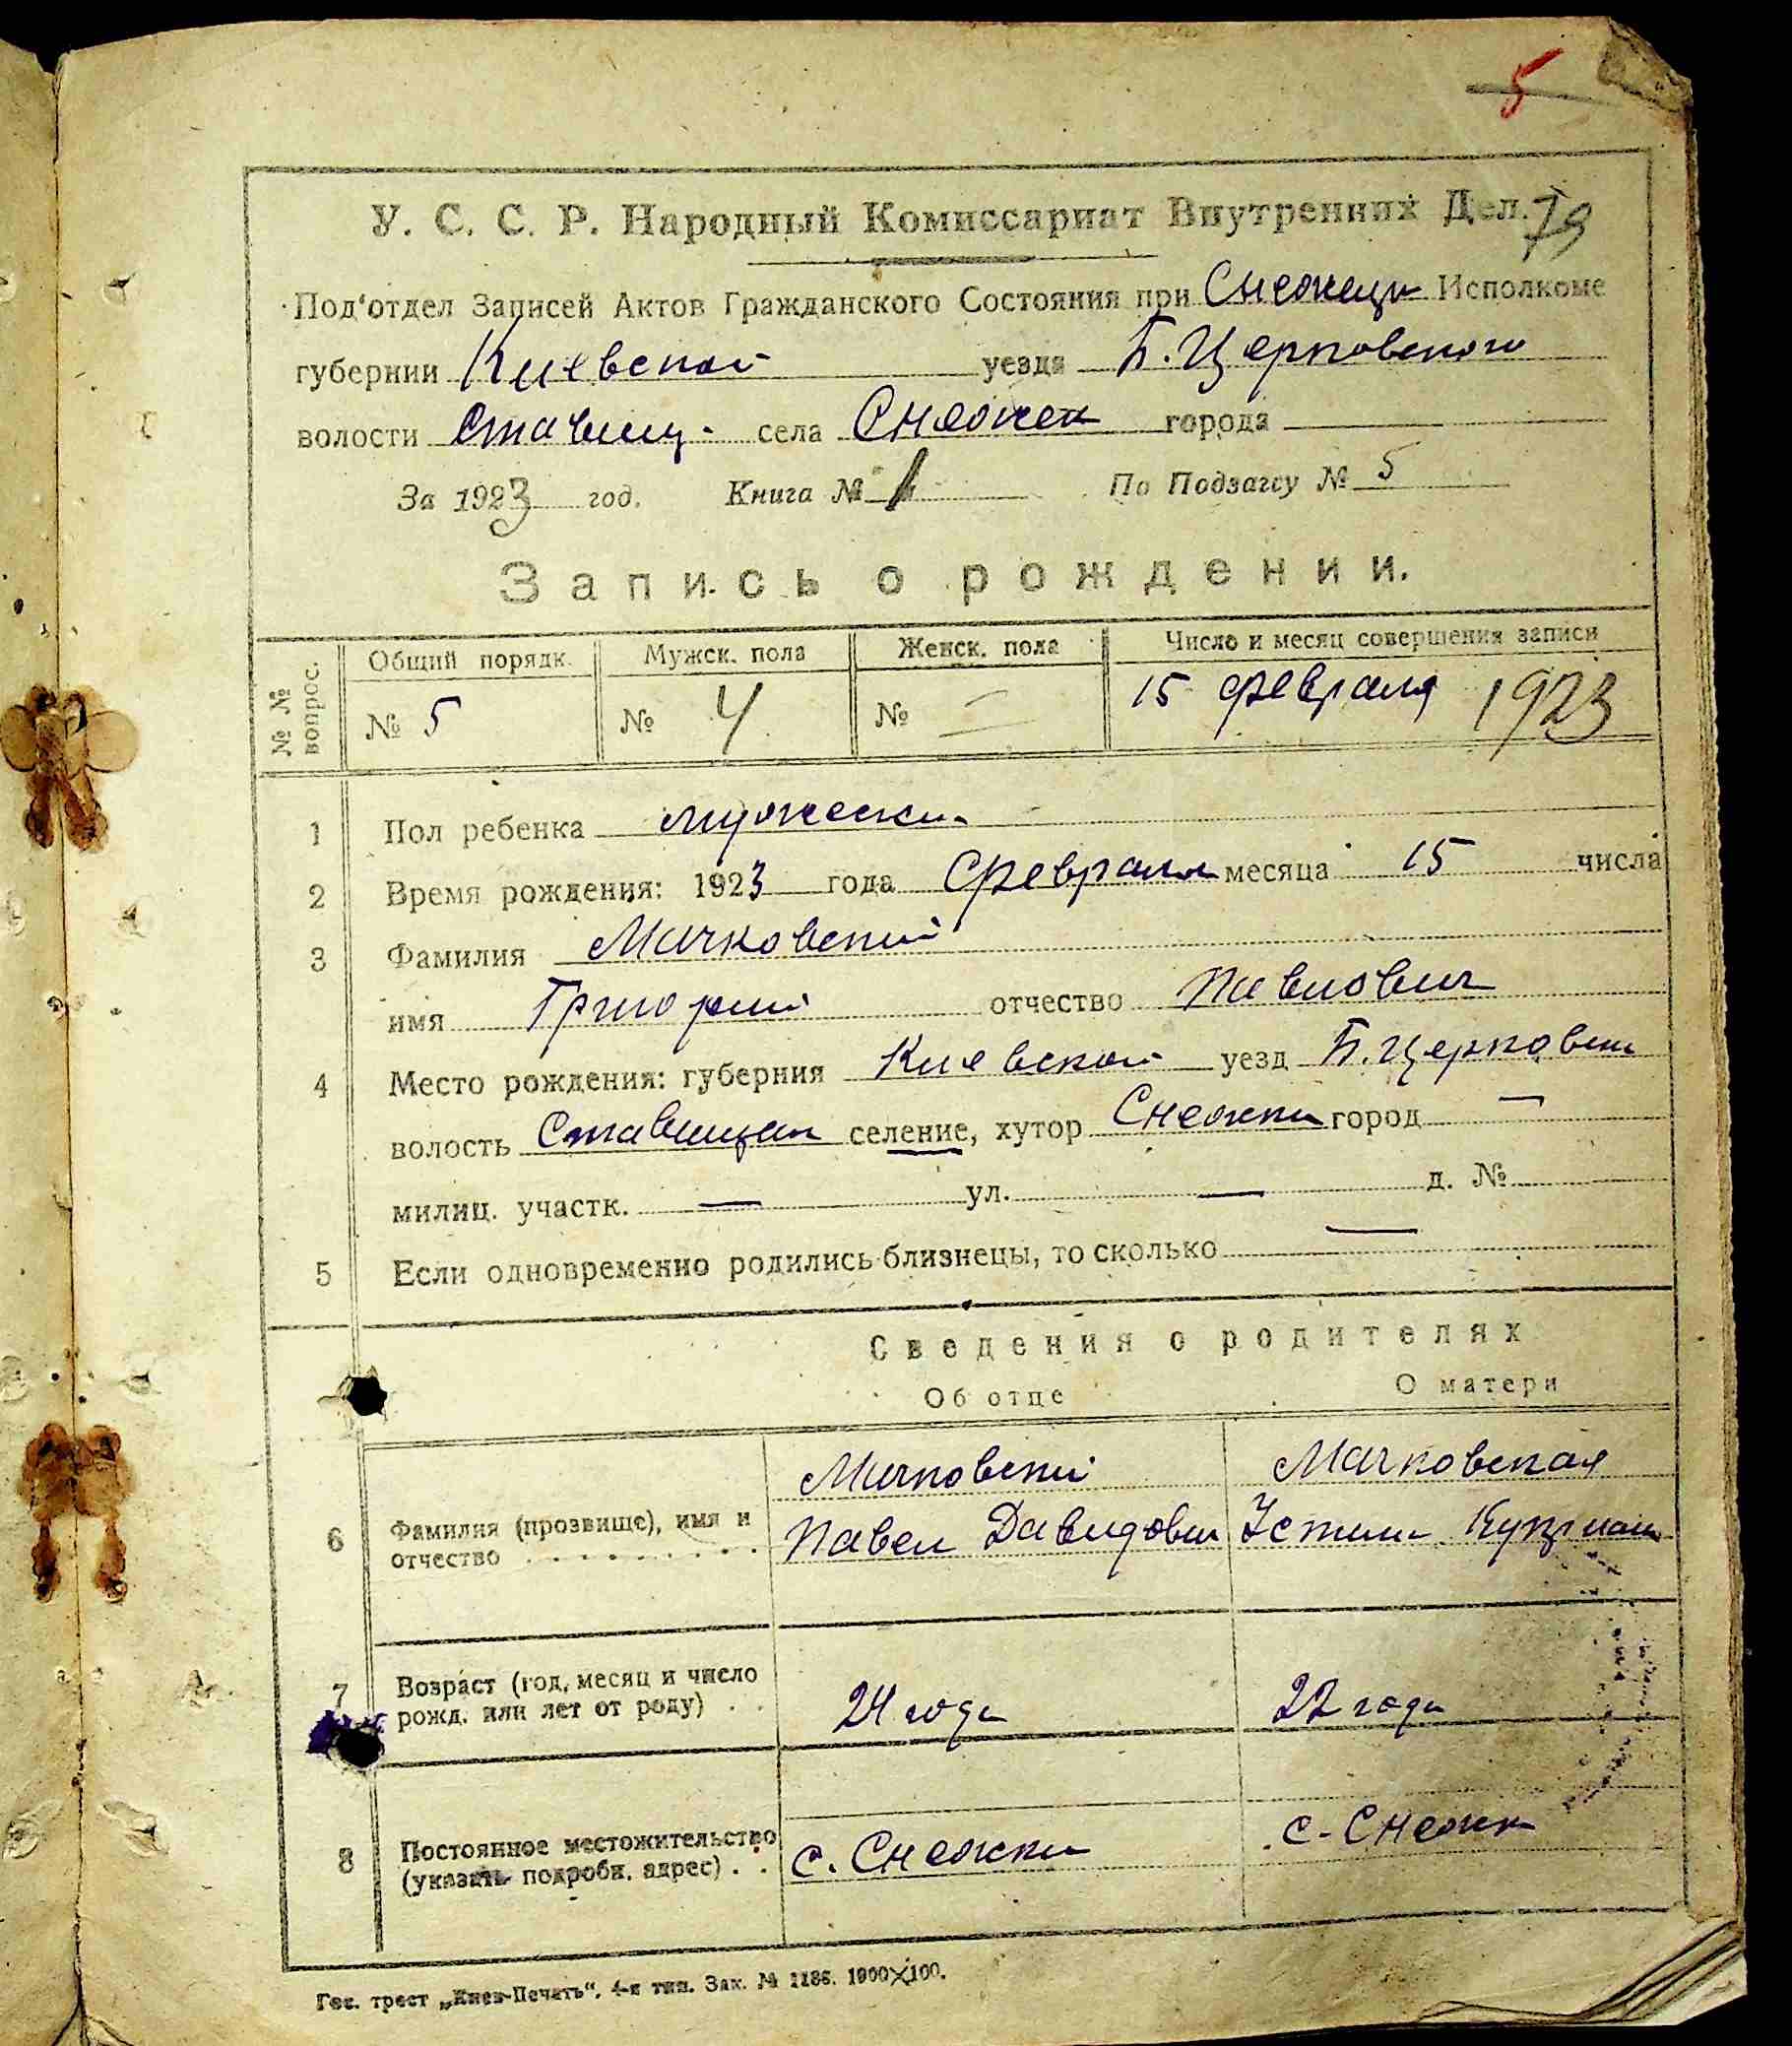 5
У. С. С. Р. Народный Комиссариат Внутренних Дел. 79
Под‘отдел Записей Актов Гражданского Состояния при Снежецк Исполкоме
губернии Киевской уезда Б. Церковского
волости Ставищ. села Снежек города
За 1923 год. Книга № 1 По Подзагсу № 5
Запись о рождении.
№№ вопрос. Общий порядк. Мужск. пола Женск. пола Число и месяц совершения записи
№ 5 № 4 № — 15 февраля 1923
1 Пол ребенка мужеский
2 Время рождения: 1923 года Февраля месяца 15 числа
3 Фамилия Мачковский
имя Григорий отчество Павлович
4 Место рождения: губерния Киевской уезд Б. Церковск
волость Ставищан селение, хутор Снежки город —
милиц. участк. — ул. — д. №
5 Если одновременно родились близнецы, то сколько —
Сведения о родителях
Об отце О матери
Мачковский Мачковская
6 Фамилия (прозвище), имя и отчество Павел Давидович Устина
7 Возраст (год, месяц и число рожд. или лет от роду) 24 года 22 года
8 Постоянное местожительство (указать подробн. адрес) с. Снежки с. Снежки
Гос. трест „Киев-Печать“, 4-я тип. Зак. № 1186. 1900×100.